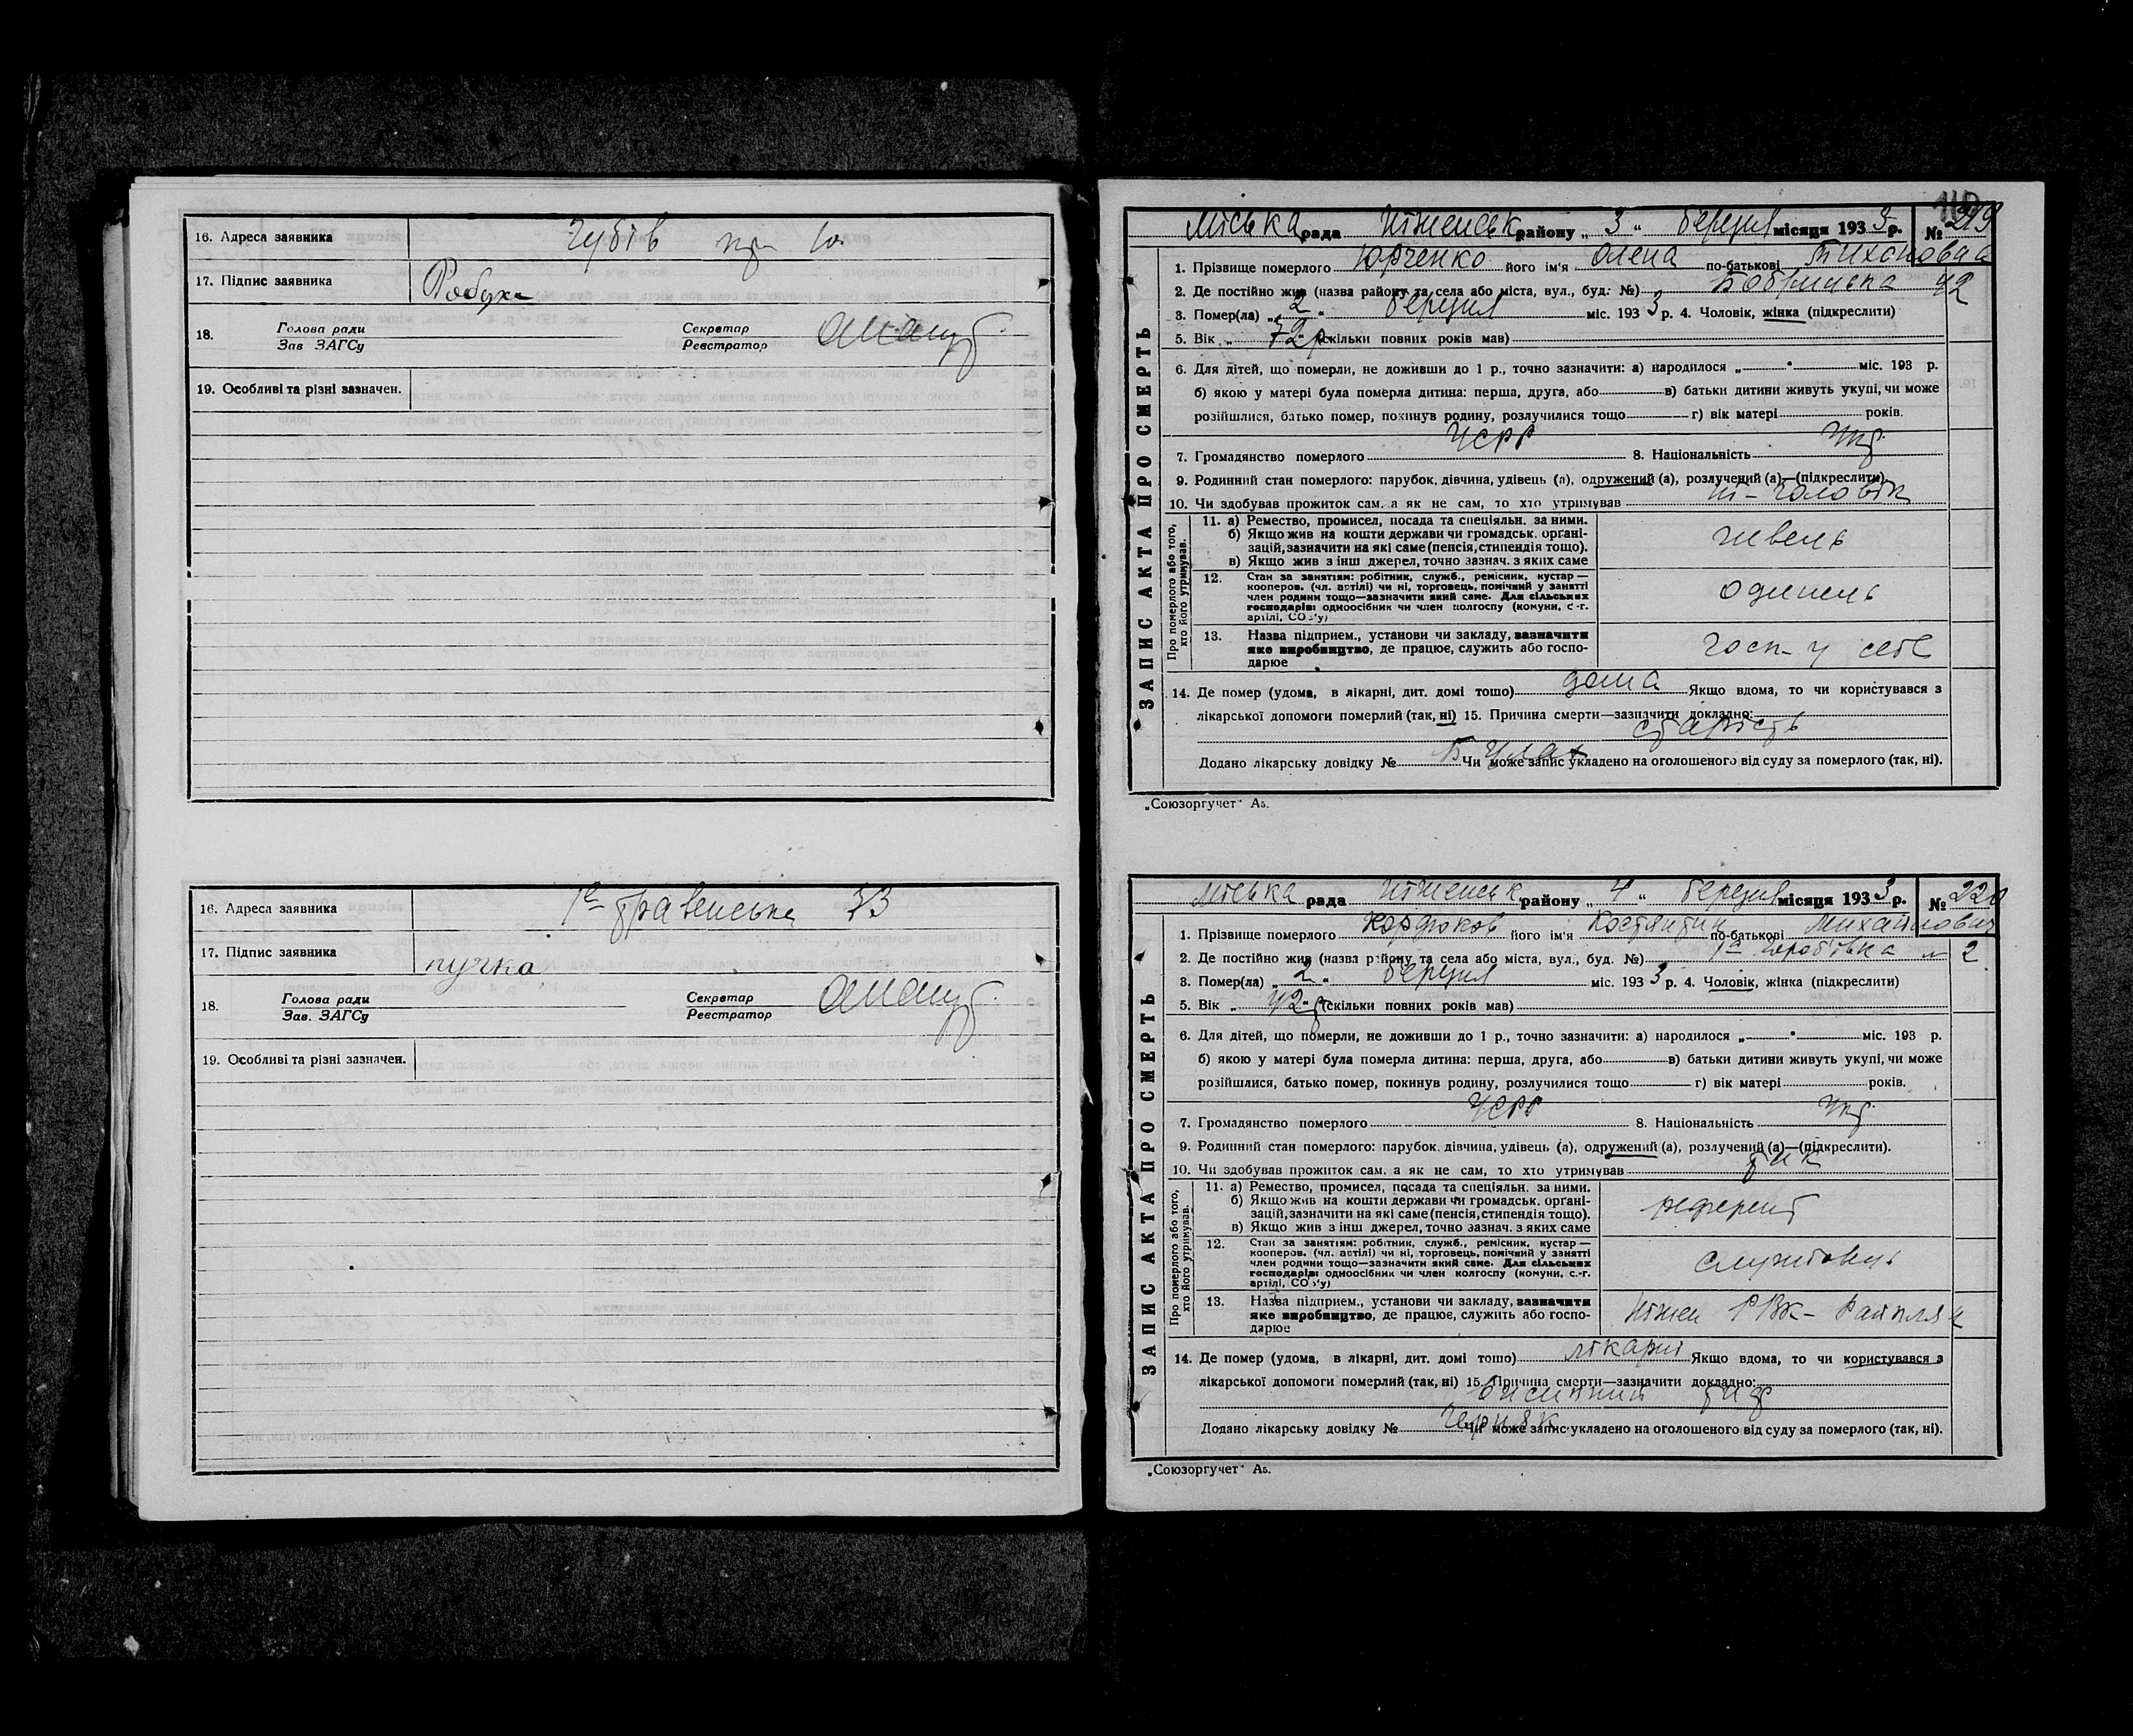 16. Адреса заявника
17. Підпис заявника
18. Голова ради Секретар
Зав ЗАГСу Реєстратор
19. Особливі та різні зазначен.
16. Адреса заявника 73
17. Підпис заявника пучка
18. Голова ради Секретар
Зав. ЗАГСу Реєстратор
19. Особливі та різні зазначен.
ЗАПИС АКТА ПРО СМЕРТЬ
Міська рада Ніженськ району „ 3 “ березня місяця 1933 р. № 219
1. Прізвище померлого Юрченко його ім'я Олена по-батькові Тихоновна
2. Де постійно жив (назва району та села або міста, вул., буд. №) 42
3. Помер(ла) „ 2 “ березня міс. 1933 р. 4. Чоловік, жінка (підкреслити)
5. Вік „ 72 р “ (скільки повних років мав)
6. Для дітей, що померли, не доживши до 1 р., точно зазначити: а) народилося „ “ міс. 193 р.
б) якою у матері була померла дитина: перша, друга, або в) батьки дитини живуть укупі, чи може
розійшлися, батько помер, покинув родину, розлучилися тощо г) вік матері років.
7. Громадянство померлого УСРР 8. Національність Укр.
9. Родинний стан померлого: парубок, дівчина, удівець (а), одружений (а), розлучений (а)—(підкреслити).
10. Чи здобував прожиток сам, а як не сам, то хто утримував ні - чоловік
Про померлого або того, хто його утримував.
11. а) Ремество, промисел, посада та спеціяльн. за ними.
б) Якщо жив на кошти держави чи громадськ. орґані-
зацій, зазначити на які саме (пенсія, стипендія тощо).
в) Якщо жив з інш джерел, точно зазнач. з яких саме
швець
12. Стан за заняттям: робітник, служб., ремісник, кустар—
кооперов. (чл. артілі) чи ні, торговець, помічний у занятті
член родини тощо—зазначити який саме. Для сільських
господарів: одноосібник чи член колгоспу (комуни, с.-г.
артілі, СОЗ'у)
одинець
13. Назва підприєм., установи чи закладу, зазначити
яке виробництво, де працює, служить або госпо-
дарює
госп- у себе
14. Де помер (удома, в лікарні, дит. домі тощо) дома Якщо вдома, то чи користувався з
лікарської допомоги померлий (так, ні) 15. Причина смерти—зазначити докладно:
старість
Додано лікарську довідку № Чи може запис укладено на оголошеного від суду за померлого (так, ні).
„Союзоргучет“ А5.
ЗАПИС АКТА ПРО СМЕРТЬ
Міська рада Ніженськ району „ 4 “ березня місяця 1933 р. № 220
1. Прізвище померлого його ім'я Костянтин по-батькові Михайлович
2. Де постійно жив (назва району та села або міста, вул., буд. №) 2
3. Помер(ла) „ 2 “ березня міс. 1933 р. 4. Чоловік, жінка (підкреслити)
5. Вік „ 42 р “ (скільки повних років мав)
6. Для дітей, що померли, не доживши до 1 р., точно зазначити: а) народилося „ “ міс. 193 р.
б) якою у матері була померла дитина: перша, друга, або в) батьки дитини живуть укупі, чи може
розійшлися, батько помер, покинув родину, розлучилися тощо г) вік матері років.
7. Громадянство померлого УСРР 8. Національність Укр.
9. Родинний стан померлого: парубок, дівчина, удівець (а), одружений (а), розлучений (а)—(підкреслити).
10. Чи здобував прожиток сам, а як не сам, то хто утримував так
Про померлого або того, хто його утримував.
11. а) Ремество, промисел, посада та спеціяльн. за ними.
б) Якщо жив на кошти держави чи громадськ. орґані-
зацій, зазначити на які саме (пенсія, стипендія тощо).
в) Якщо жив з інш джерел, точно зазнач. з яких саме
референт
12. Стан за заняттям: робітник, служб., ремісник, кустар—
кооперов. (чл. артілі) чи ні, торговець, помічний у занятті
член родини тощо—зазначити який саме. Для сільських
господарів: одноосібник чи член колгоспу (комуни, с.-г.
артілі, СОЗ'у)
службовець
13. Назва підприєм., установи чи закладу, зазначити
яке виробництво, де працює, служить або госпо-
дарює
Ніжен РВК - Райплян
14. Де помер (удома, в лікарні, дит. домі тощо) лікарні Якщо вдома, то чи користувався з
лікарської допомоги померлий (так, ні) 15. Причина смерти—зазначити докладно:
висипний тиф
Додано лікарську довідку № Черняк Чи може запис укладено на оголошеного від суду за померлого (так, ні).
„Союзоргучет“ А5.